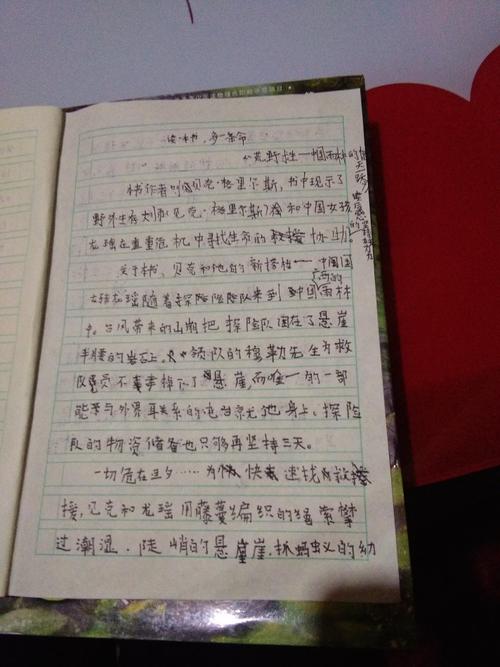 读一本书，多一条命
《荒野求生—雨林的惊天一跃》
本书作者 贝克·格里尔斯，书中现示了
野外生存 贝克·格里尔斯 和中国女孩
龙瑶在重重危机中寻找生命的 协助。
关于本书，贝克和他的新搭档——中国国
女孩龙瑶随着探险队来到 中国 的雨林
中。台风带来的山崩把探险队困在了悬崖
半腰的岩石上。领队的穆勒先生为救
队员不幸掉下了悬崖，而唯一的一部
能够与外界联系的电台就在他身上。探险
队的物资储备也只够再坚持三天。
一切危在旦夕……为 快 速找 救
援，贝克和龙瑶用藤蔓编织的绳索攀
过潮湿、陡峭的悬崖，抓蚂蚁的幼